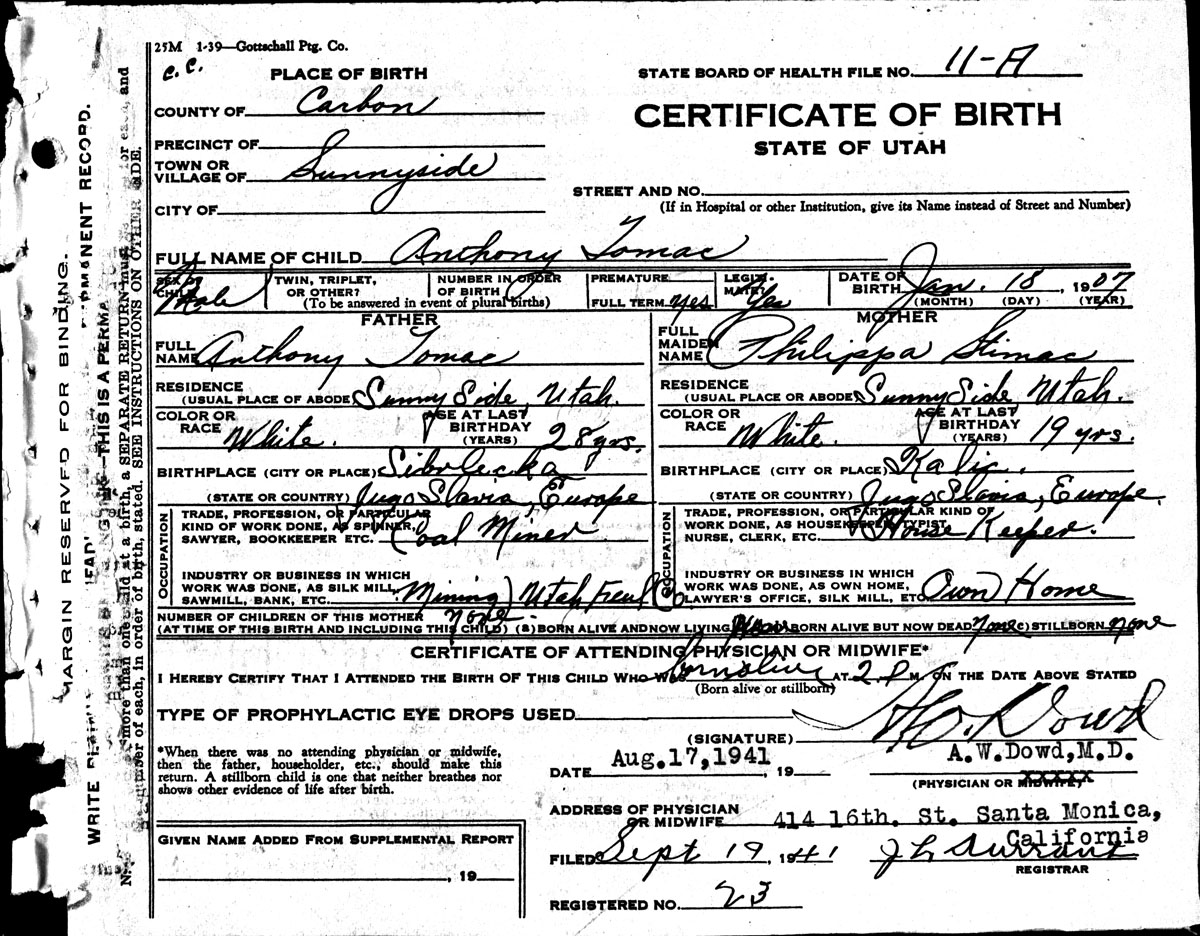 25M 1-39—Gottschall Ptg. Co.
C. C.
PLACE OF BIRTH
COUNTY OF Carbon
PRECINCT OF
TOWN OR VILLAGE OF Sunnyside
CITY OF
STATE BOARD OF HEALTH FILE NO. 11-A
CERTIFICATE OF BIRTH
STATE OF UTAH
STREET AND NO.
(If in Hospital or other Institution, give its Name instead of Street and Number)
FULL NAME OF CHILD Anthony Tomac
SEX OF CHILD Male
TWIN, TRIPLET, OR OTHER?
NUMBER IN ORDER OF BIRTH
(To be answered in event of plural births)
PREMATURE
FULL TERM yes
LEGITIMATE? Yes
DATE OF BIRTH Jan. 18, 1907
(MONTH) (DAY) (YEAR)
FATHER
FULL NAME Anthony Tomac
RESIDENCE (USUAL PLACE OF ABODE) Sunny Side, Utah.
COLOR OR RACE White.
AGE AT LAST BIRTHDAY (YEARS) 28 yrs.
BIRTHPLACE (CITY OR PLACE)
(STATE OR COUNTRY) Jugo Slavia, Europe
OCCUPATION
TRADE, PROFESSION, OR PARTICULAR KIND OF WORK DONE, AS SPINNER, SAWYER, BOOKKEEPER ETC. Coal Miner
INDUSTRY OR BUSINESS IN WHICH WORK WAS DONE, AS SILK MILL, SAWMILL, BANK, ETC. Mining) Utah Fuel Co
MOTHER
FULL MAIDEN NAME Philippa Stimac
RESIDENCE (USUAL PLACE OR ABODE) Sunny Side Utah.
COLOR OR RACE White.
AGE AT LAST BIRTHDAY (YEARS) 19 yrs.
BIRTHPLACE (CITY OR PLACE) Kalic.
(STATE OR COUNTRY) Jugo Slavia, Europe.
OCCUPATION
TRADE, PROFESSION, OR PARTICULAR KIND OF WORK DONE, AS HOUSEKEEPER, TYPIST, NURSE, CLERK, ETC. House Keeper.
INDUSTRY OR BUSINESS IN WHICH WORK WAS DONE, AS OWN HOME, LAWYER'S OFFICE, SILK MILL, ETC Own Home
NUMBER OF CHILDREN OF THIS MOTHER none.
(AT TIME OF THIS BIRTH AND INCLUDING THIS CHILD) (A) BORN ALIVE AND NOW LIVING BORN ALIVE BUT NOW DEAD None (C) STILLBORN None
CERTIFICATE OF ATTENDING PHYSICIAN OR MIDWIFE*
I HEREBY CERTIFY THAT I ATTENDED THE BIRTH OF THIS CHILD WHO WAS born alive AT 2 P M. ON THE DATE ABOVE STATED
(Born alive or stillborn)
TYPE OF PROPHYLACTIC EYE DROPS USED
*When there was no attending physician or midwife,
then the father, householder, etc., should make this
return. A stillborn child is one that neither breathes nor
shows other evidence of life after birth.
(SIGNATURE) A. W. Dowd
A.W.Dowd,M.D.
(PHYSICIAN OR MIDWIFE)
DATE Aug.17,1941, 19
ADDRESS OF PHYSICIAN OR MIDWIFE 414 16th. St. Santa Monica,
California
GIVEN NAME ADDED FROM SUPPLEMENTAL REPORT
, 19
FILED Sept 19, 1941 J L Durrant
REGISTRAR
REGISTERED NO. 23
MARGIN RESERVED FOR BINDING.
THIS IS A PERMANENT RECORD.
SEE INSTRUCTIONS ON OTHER SIDE.